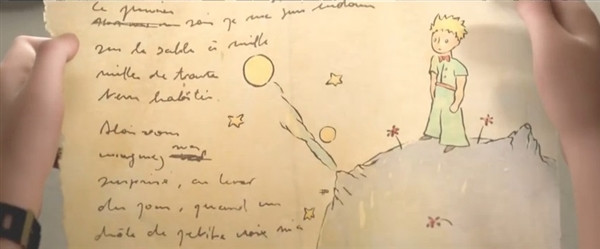 Le premier
soir je me suis endormi
sur le sable à mille
mille de toute
terre habitée.
Alors vous
imaginez ma
surprise, au lever
du jour, quand une
drôle de petite voix m'a